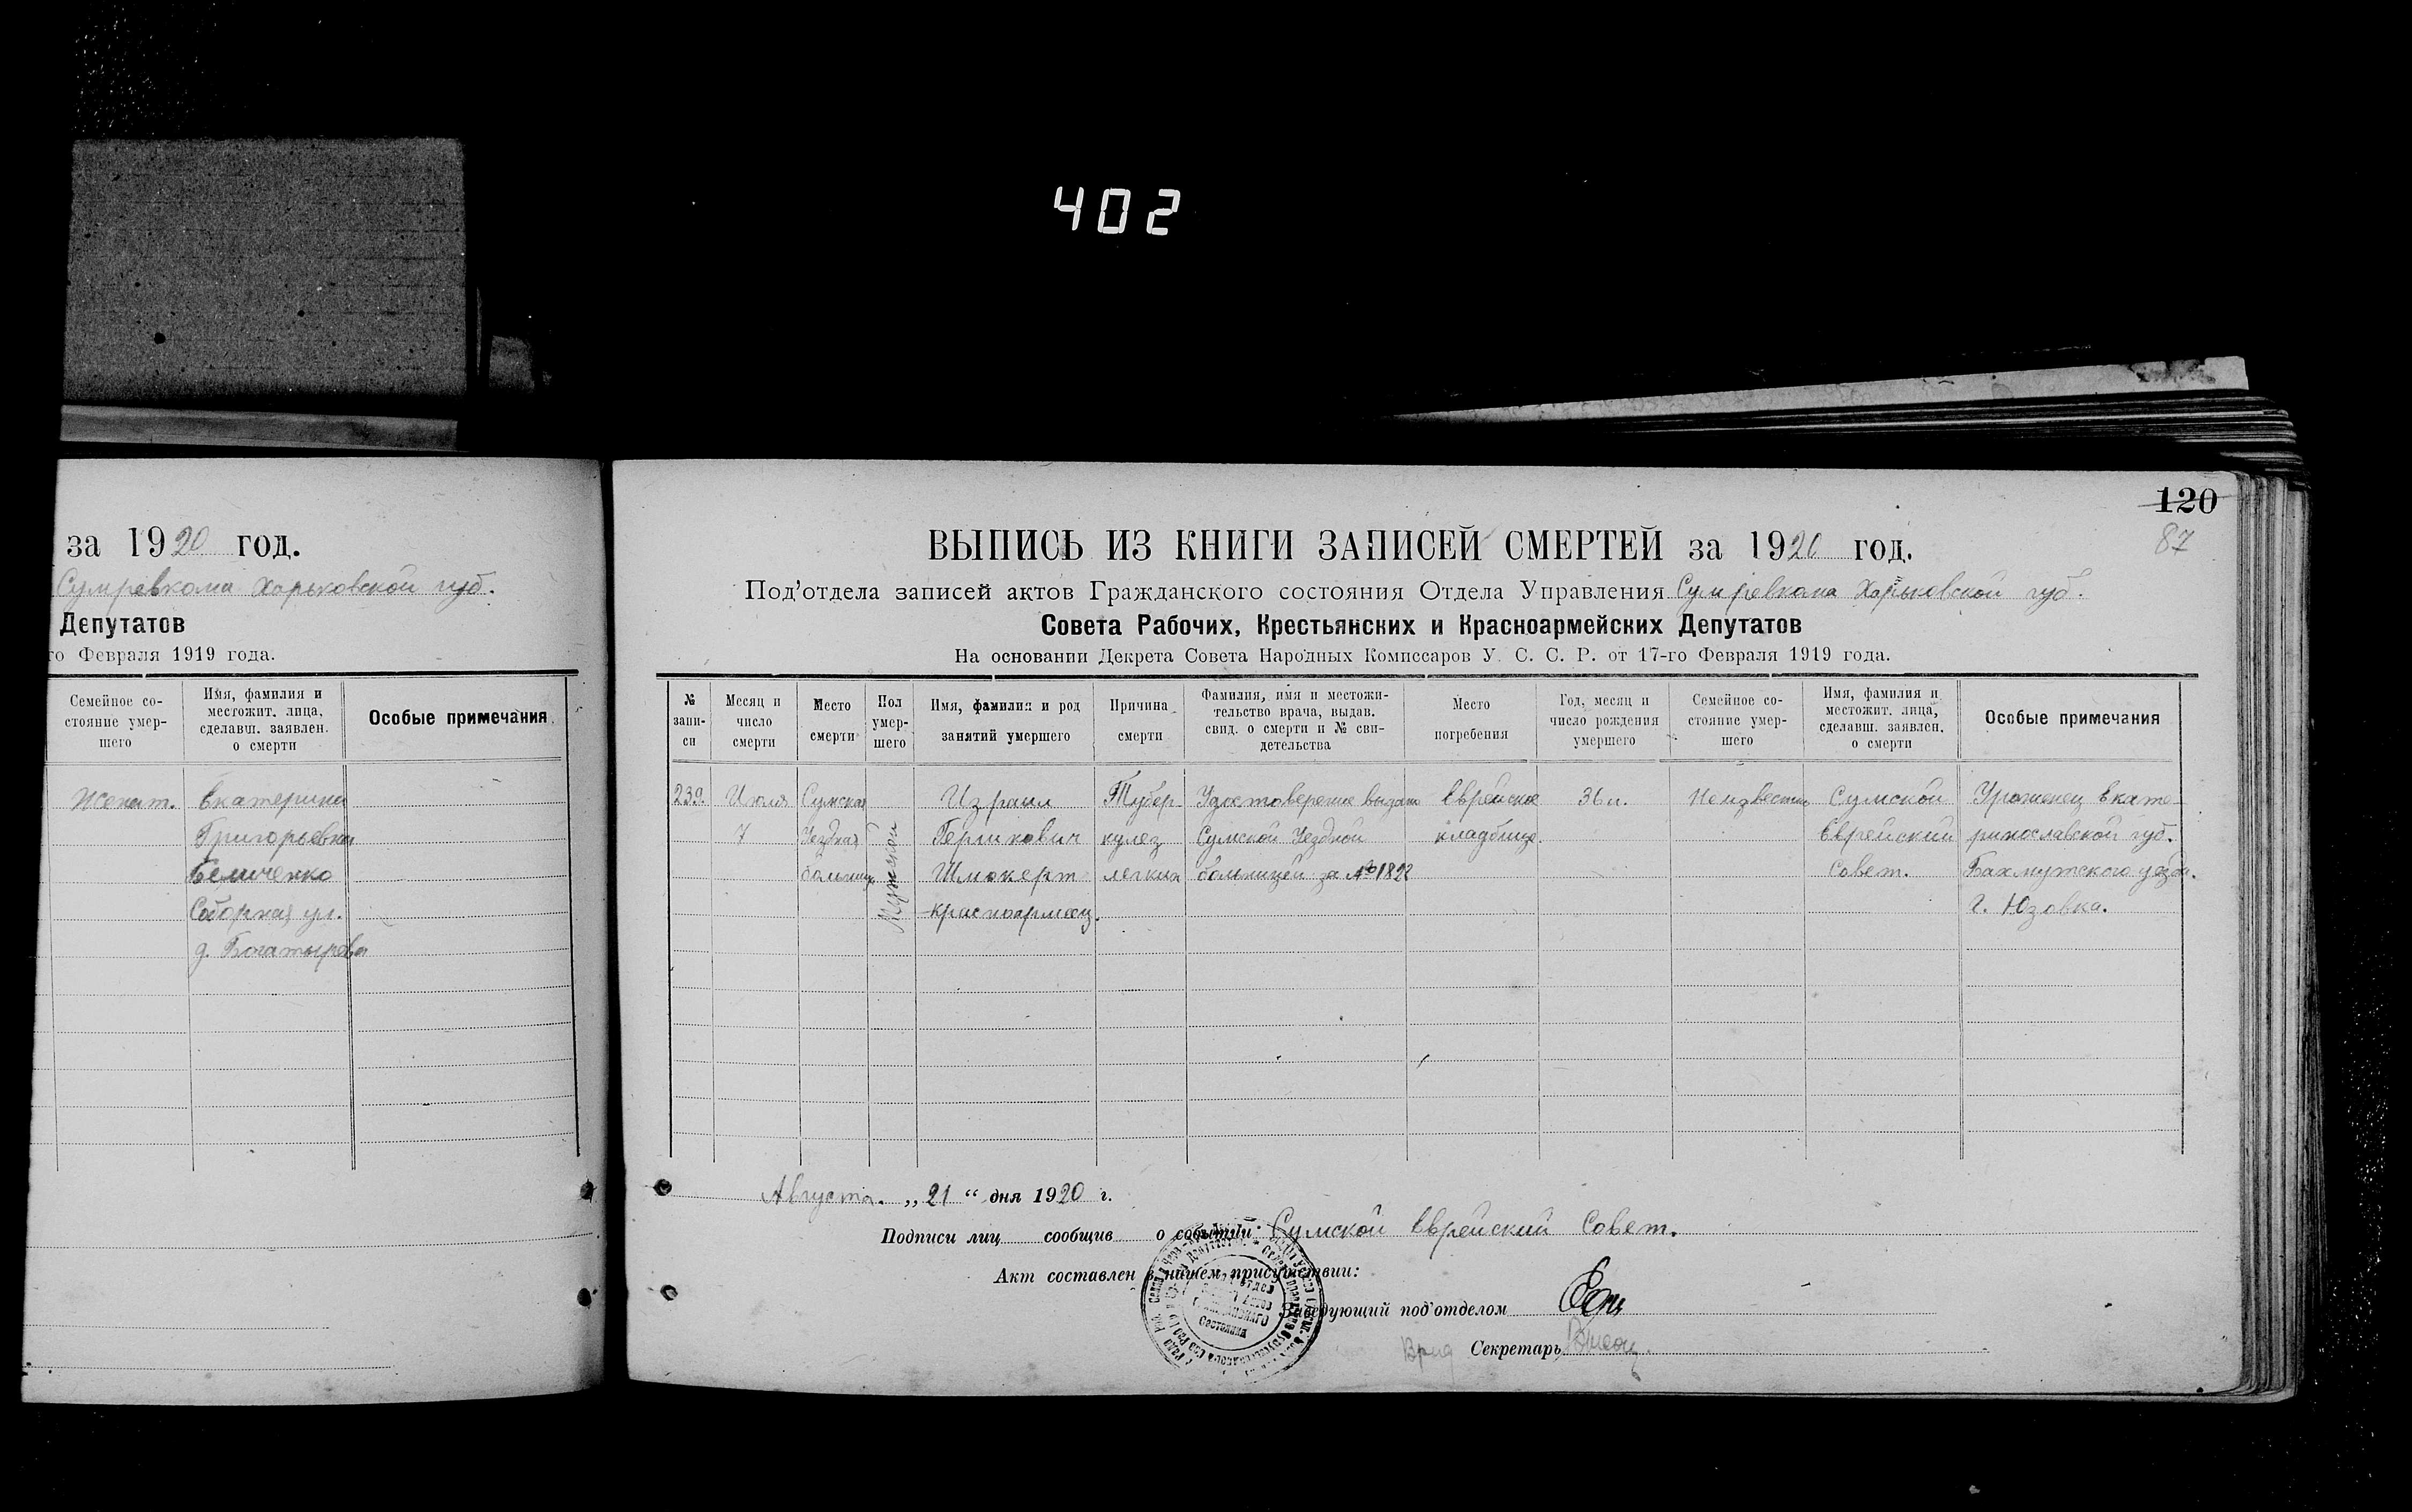 402
за 1920 год.
Сумревкома Харьковской губ.
Депутатов
го Февраля 1919 года.
Семейное со-
стояние умер-
шего
Имя, фамилия и
местожит. лица,
сделавш. заявлен.
о смерти
Особые примечания.
Женат.
Екатерина
Григорьевна
Беличенко
Соборная ул.
д. Богатырева
120
87
ВЫПИСЬ ИЗ КНИГИ ЗАПИСЕЙ СМЕРТЕЙ за 1920 год.
Под'отдела записей актов Гражданского состояния Отдела Управления Сумревкома Харьковской губ.
Совета Рабочих, Крестьянских и Красноармейских Депутатов
На основании Декрета Совета Народных Комиссаров У. С. С. Р. от 17-го Февраля 1919 года.
№
запи-
си
Месяц и
число
смерти
Место
смерти
Пол
умер-
шего
Имя, фамилия и род
занятий умершего
Причина
смерти
Фамилия, имя и местожи-
тельство врача, выдав.
свид. о смерти и № сви-
детельства
Место
погребения
Год, месяц и
число рождения
умершего
Семейное со-
стояние умер-
шего
Имя, фамилия и
местожит. лица,
сделавш. заявлен.
о смерти
Особые примечания
239.
Июля
7
Сумская
Уездная
больниц.
Мужской
Израил
Гершкович
Шмокерт
красноармеец.
Тубер-
кулез
легких
Удостоверение выдано
Сумской Уездной
больницей за № 1822
Еврейское
кладбище.
36 л.
Неизвестно
Сумской
Еврейский
Совет.
Уроженец Екате-
ринославской губ.
Бахмутского уезда.
г. Юзовка.
Августа. „21“ дня 1920 г.
Подписи лиц сообщив о событии: Сумской Еврейский Совет.
Акт составлен в нашем присутствии:
Заведующий под'отделом
Врид Секретарь
Гражданского
Состояния